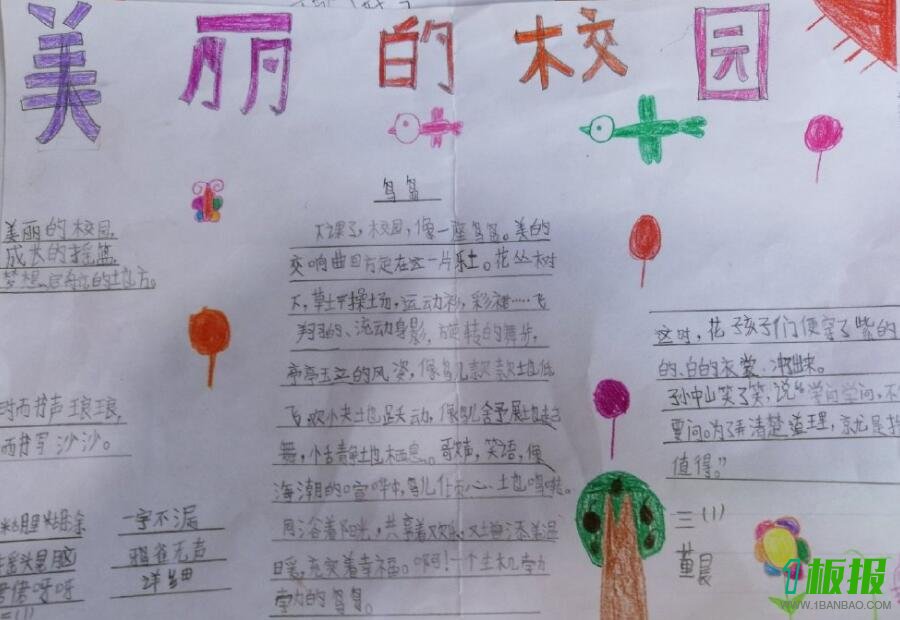 美丽的校园
鸟岛
下课了，校园，像一座鸟岛。美的
交响曲回荡在这一片乐土。花丛树
下，草土干操土场，运动衫，彩裙……飞
翔的、流动身影，旋转的舞步，
亭亭玉立的风姿，像鸟儿款款地低
飞，欢小夹地跃动，像鸟儿舍予展地起
舞，恬静地栖息。歌声，笑语，像
海潮的喧哗，鸟儿任心地鸣啭。
沐浴着阳光，共享着欢乐，
暖，充实着幸福。啊！一个生机
的鸟岛。
美丽的校园，
成长的摇篮，
梦想启舟的地方。
时而书声琅琅，
而书写沙沙。
一字不漏
鸦雀无声
详细
摇头晃脑
三(1)
这时，花孩子们便穿了紫的
的、白的衣裳，冲出来。
孙中山笑了笑，说："学问学问，不
要问。为了弄清楚道理，就是挨
值得。"
三(1)
董晨
1板报
WWW.1BANBAO.COM